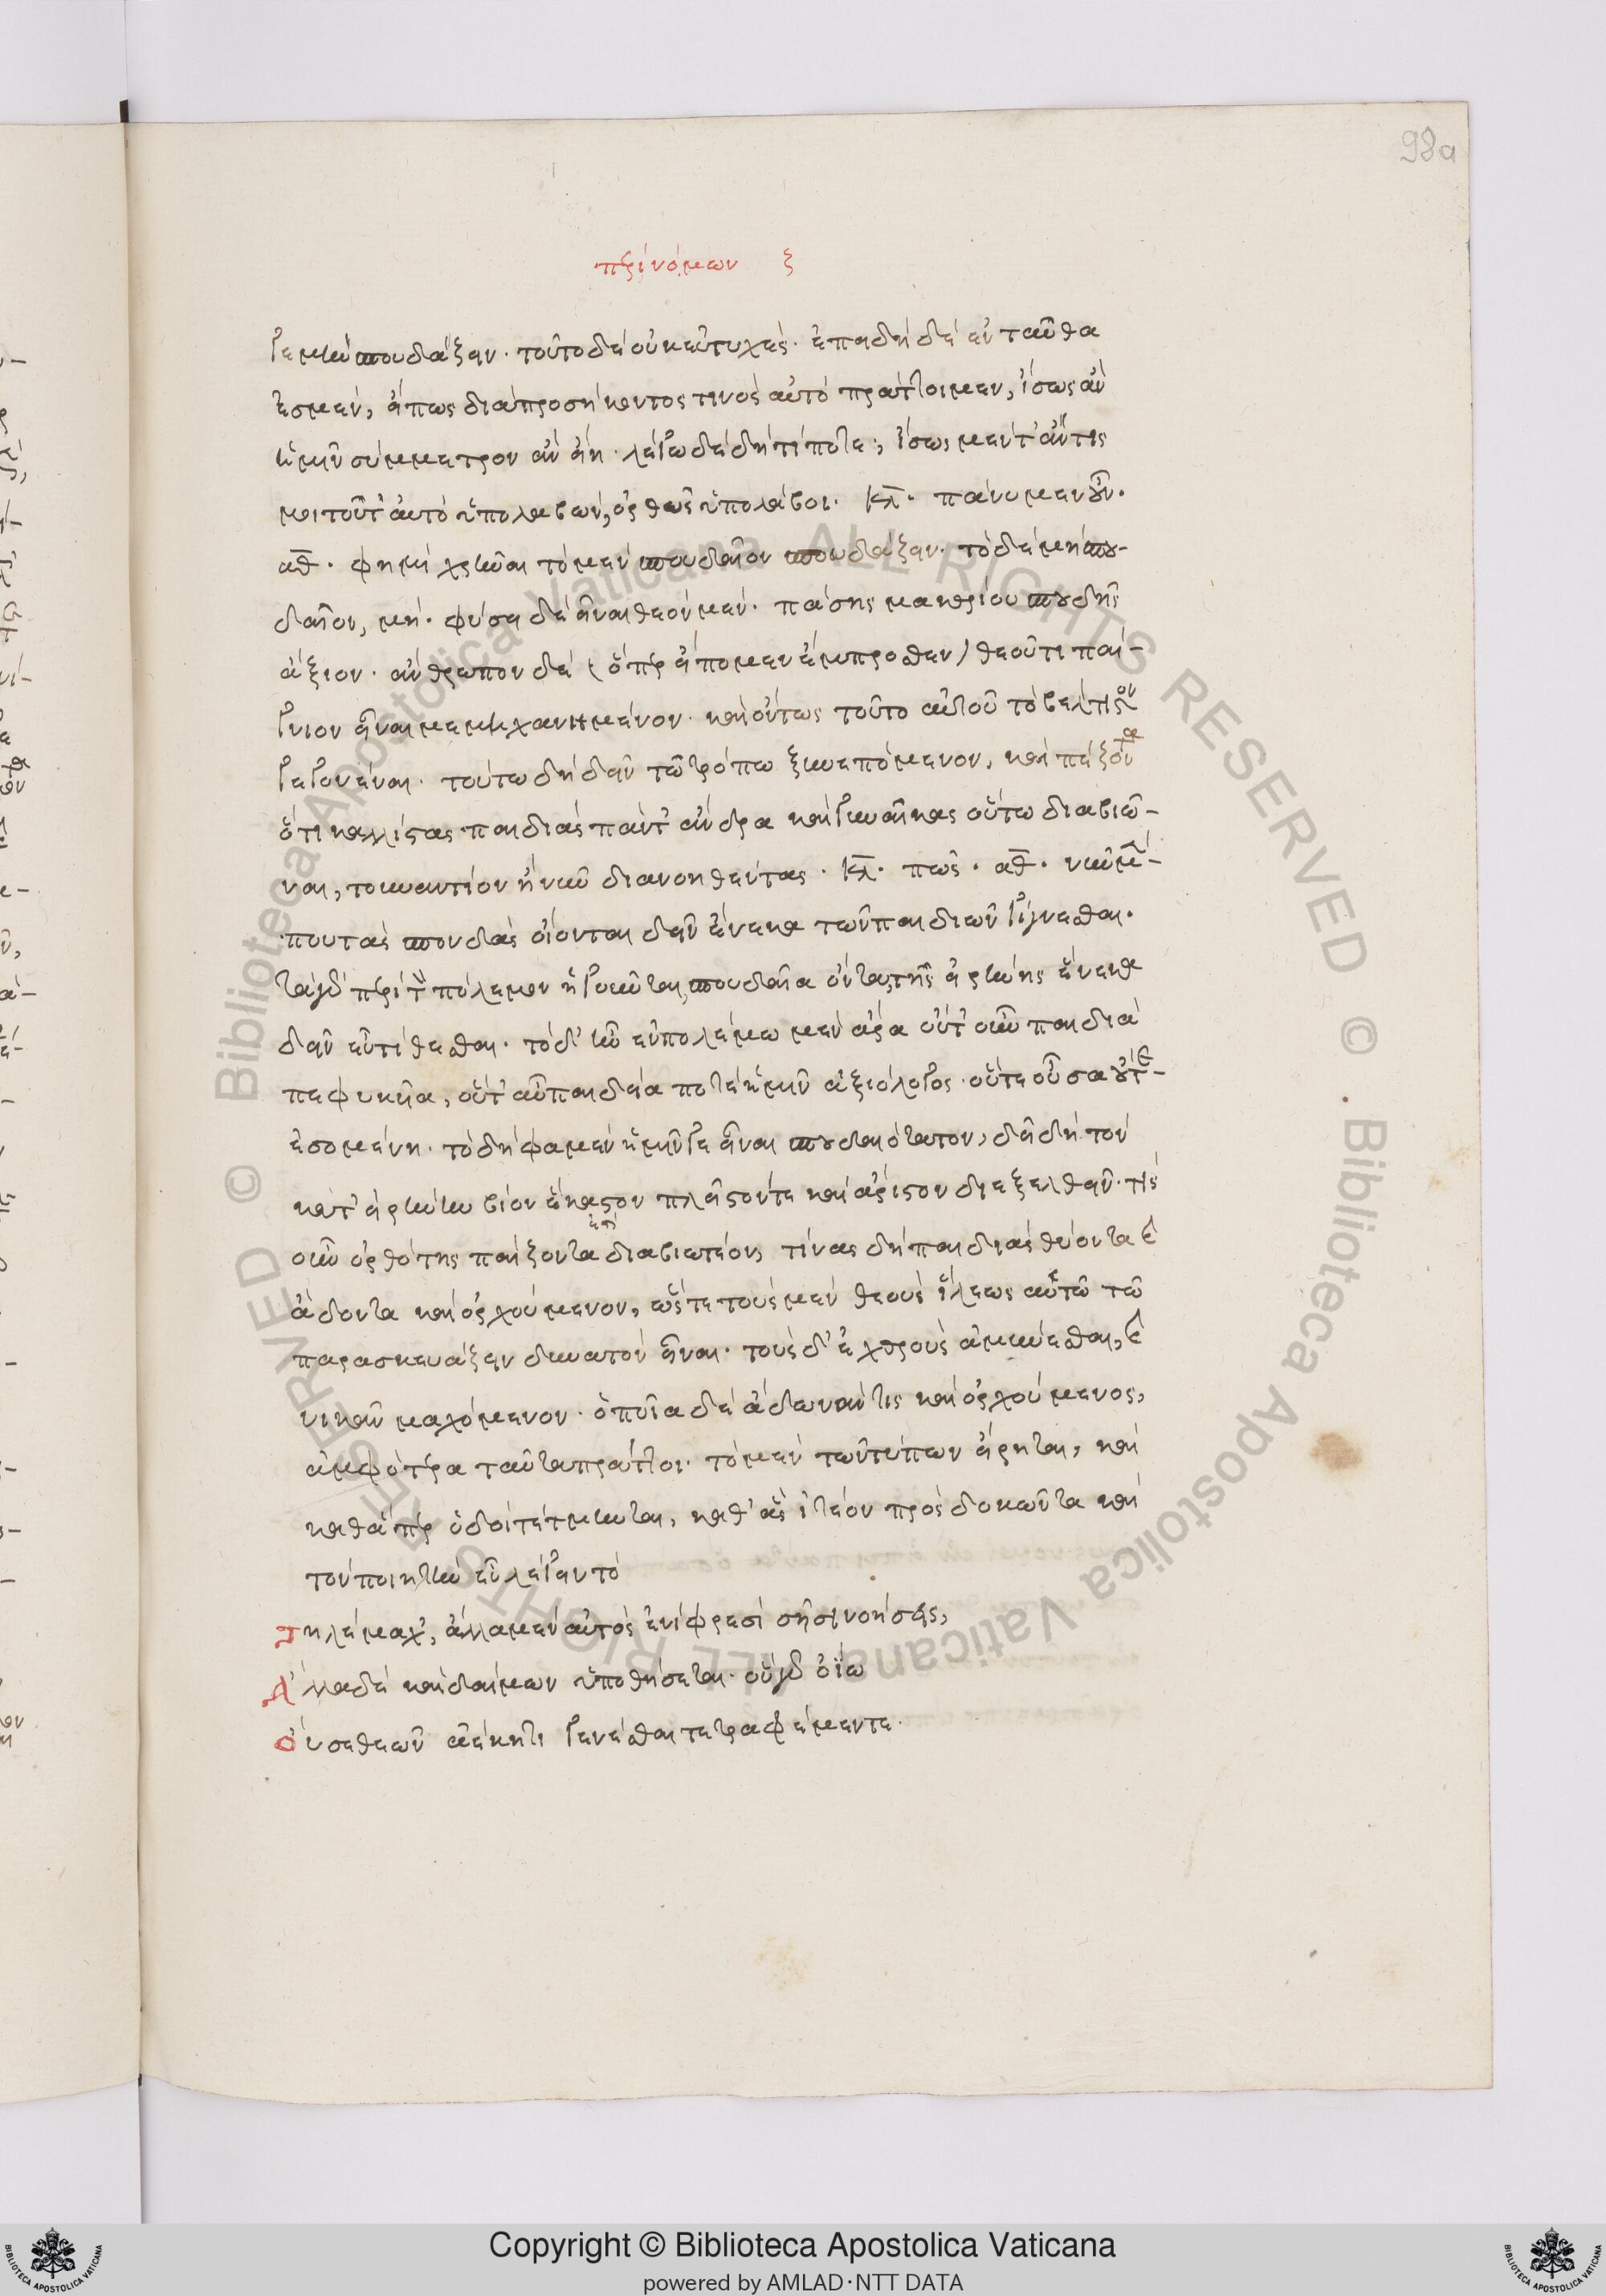 98a
περὶ νόμων ζ
γε μὴν σπουδάζειν· τοῦτο δὲ οὐκ εὐτυχές· ἐπειδὴ δὲ ἐνταῦθα
ἐσμὲν, εἴ πως διὰ προσήκοντος τινὸς αὐτὸ πράττοιμεν, ἴσως ἂν
ἡμῖν σύμμετρον ἂν εἴη· λέγω δὲ δὴ τί ποτε; ἴσως μέντ' ἄν τις
μοι τοῦτ' αὐτὸ ὑπολαβὼν, ὀρθῶς ὑπολάβοι. Κλ. πάνυ μὲν οὖν.
αθ. φημὶ χρῆναι τὸ μὲν σπουδαῖον σπουδάζειν· τὸ δὲ μὴ σπου-
δαῖον, μή· φύσει δὲ εἶναι θεὸν μὲν· πάσης μακαρίου σπουδῆς
ἄξιον· ἄνθρωπον δὲ (ὅπερ εἴπομεν ἔμπροσθεν) θεοῦ τι παί-
γνιον εἶναι μεμηχανημένον· καὶ ὄντως τοῦτο αὐτοῦ τὸ βέλτιστον
γεγονέναι· τούτω δὴ δεῖν τῶ τρόπω ξυνεπόμενον, καὶ παίζονθ
ὅτι καλλίστας παιδιὰς πάντ' ἄνδρα καὶ γυναῖκας οὕτω διαβιῶ-
ναι, τουναντίον ἢ νῦν διανοηθέντας. Κλ. πῶς. αθ. νῦν μέ-
που τὰς σπουδὰς οἴονται δεῖν ἕνεκα τῶν παιδιῶν γίγνεσθαι·
τὰ γὰρ περὶ τὸν πόλεμον ἡγοῦνται, σπουδαῖα ὄντα, τῆς εἰρήνης ἕνεκα
δεῖν εὖ τίθεσθαι· τὸ δ' ἦν ἐν πολέμω μὲν ἄρα οὔτ' οὖν παιδιὰ
πεφυκυῖα, οὔτ' αὖ παιδεία ποτὲ ἡμῖν ἀξιόλογος· οὔτε οὖσα οὔτ-
ἐσομένη· τὸ δή φαμεν ἡμῖν γε εἶναι σπουδαιότατον, δεῖ δὴ τὸν
κατ' εἰρήνην βίον ἕκαστον πλεῖστόν τε καὶ ἄριστον διεξελθεῖν· τίς
οὖν ὀρθότης παίζοντα ἐστὶ διαβιωτέον, τίνας δὴ παιδιὰς θύοντα καὶ
ἄδοντα καὶ ὀρχούμενον, ὥστε τοὺς μὲν θεοὺς ἵλεως αὑτῶ τῶ
παρασκευάζειν δυνατὸν εἶναι· τοὺς δ' ἐχθροὺς ἀμύνεσθαι, καὶ
νικᾶν μαχόμενον· ὁποῖα δὲ ἄδων ἄν τις καὶ ὀρχούμενος,
ἀμφότερα ταῦτα πράττοι· τὸ μὲν τῶν τύπων εἴρηται, καὶ
καθάπερ ὁδοὶ τέτμηνται, καθ' ἃς ἰτέον προσδοκῶντα καὶ
τὸν ποιητὴν εὖ λέγειν τὸ
τηλέμαχ', ἄλλα μὲν αὐτὸς ἐνὶ φρεσὶ σῆσι νοήσεις,
ἄλλα δὲ καὶ δαίμων ὑποθήσεται· οὐ γὰρ ὀΐω
οὔ σε θεῶν ἀέκητι γενέσθαι τετραφέμεν τε.
Copyright © Biblioteca Apostolica Vaticana
powered by AMLAD·NTT DATA